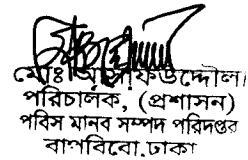 মোঃ আশাফউদ্দৌলা
পরিচালক, (প্রশাসন)
পবিস মানব সম্পদ পরিদপ্তর
বাপবিবো, ঢাকা